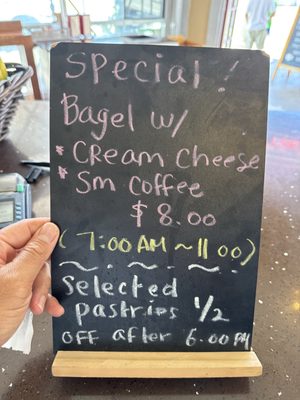 Special!
Bagel w/
* Cream Cheese
* Sm Coffee
$8.00
(7:00 AM ~ 11 00)
Selected
pastries 1/2
OFF after 6:00 PM